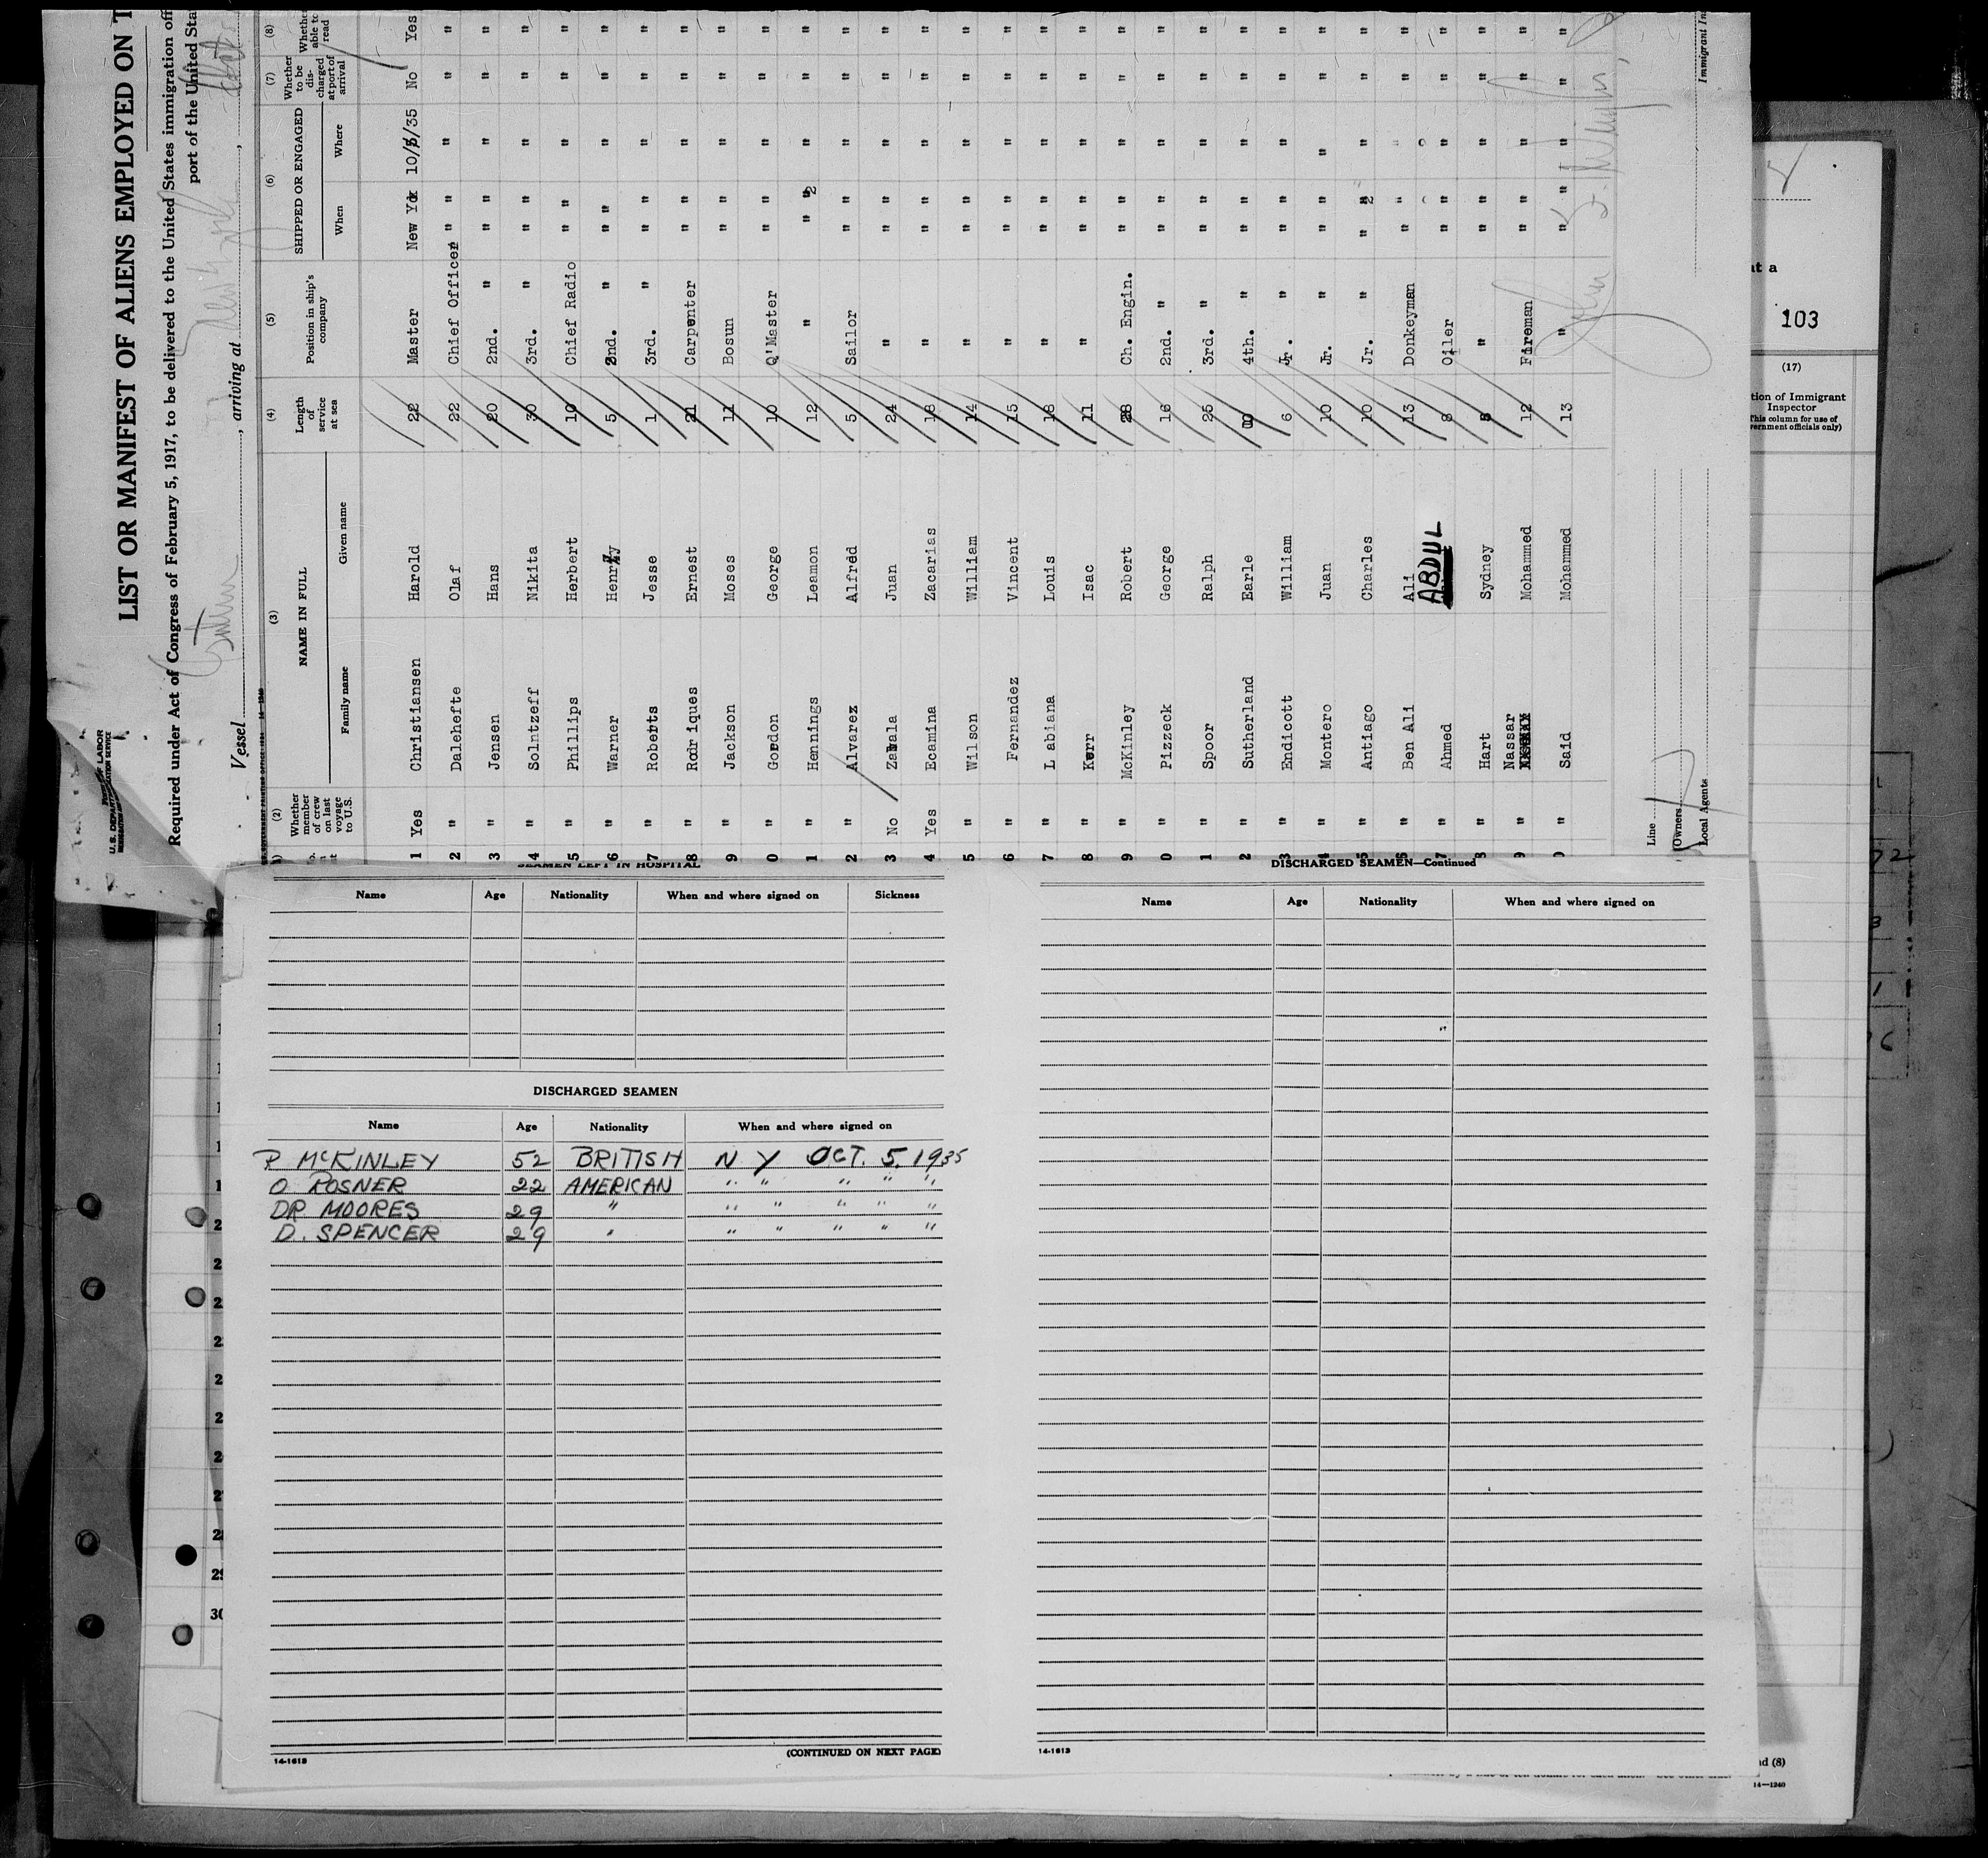 LIST OR MANIFEST OF ALIENS EMPLOYED ON T
Required under Act of Congress of February 5, 1917, to be delivered to the United States immigration off
port of the United Sta
Vessel , arriving at ,
(2) (3) (4) (5) (6) (7) (8)
Whether member of crew on last voyage to U.S. NAME IN FULL Length of service at sea Position in ship's company SHIPPED OR ENGAGED Whether to be discharged at port of arrival Whether able to read
Family name Given name When Where
1 Yes Christiansen Harold 22 Master New Yk 10/5/35 No Yes
2 " Dalehefte Olaf 22 Chief Officer " " " " "
3 " Jensen Hans 20 2nd. " " " " " "
4 " Solntzeff Nikita 30 3rd. " " " " " "
5 " Phillips Herbert 10 Chief Radio " " " " "
6 " Warner Henry 5 2nd. " " " " " "
7 " Roberts Jesse 1 3rd. " " " " " "
8 " Rodriques Ernest 21 Carpenter " " " " "
9 " Jackson Moses 11 Bosun " " " " "
0 " Gordon George 10 Q'Master " " " " "
1 " Hennings Leamon 12 " " " " " "
2 " Alvarez Alfred 5 Sailor " " " " "
3 No Zabala Juan 24 " " " " " "
4 Yes Ecamina Zacarias 18 " " " " " "
5 " Wilson William 14 " " " " " "
6 " Fernandez Vincent 15 " " " " " "
7 " L abiana Louis 18 " " " " " "
8 " Kerr Isac 11 " " " " " "
9 " McKinley Robert 28 Ch. Engin. " " " " "
0 " Pizzeck George 16 2nd. " " " " " "
1 " Spoor Ralph 25 3rd. " " " " " "
2 " Sutherland Earle 10 4th. " " " " " "
3 " Endicott William 6 Jr. " " " " " "
4 " Montero Juan 10 Jr. " " " " " "
5 " Antiago Charles 10 Jr. " " " " " "
6 " Ben Ali Ali 13 Donkeyman " " " " "
7 " Ahmed ABDUL 8 Oiler " " " " "
8 " Hart Sydney 8 " " " " " "
9 " Nassar Mohammed 12 Fireman " " " " "
0 " Said Mohammed 13 " " " " " "
Line
Owners
Local Agents
Immigrant In
at a
103
(17)
tion of Immigrant
Inspector
This column for use of
vernment officials only)
SEAMEN LEFT IN HOSPITAL
Name Age Nationality When and where signed on Sickness
DISCHARGED SEAMEN
Name Age Nationality When and where signed on
R McKINLEY 52 BRITISH N Y OCT. 5. 1935
O. ROSNER 22 AMERICAN " " " " "
DR MOORES 29 " " " " " "
D. SPENCER 29 " " " " " "
14-1613
(CONTINUED ON NEXT PAGE)
DISCHARGED SEAMEN—Continued
Name Age Nationality When and where signed on
14-1613
29
30
nd (8)
14—1240